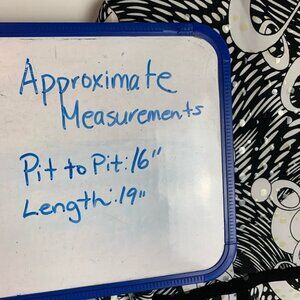 Approximate
Measurements
Pit to Pit: 16"
Length: 19"